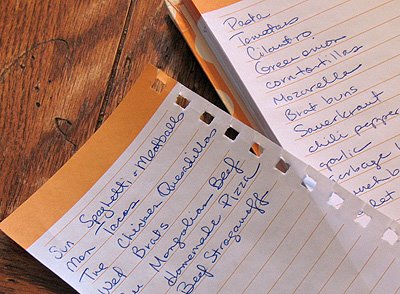 Sun Spaghetti + Meatballs
Mon Tacos
Tue Chicken Quesadillas
Wed Brats
Mongolian Beef
Homemade Pizza
Beef Stroganoff
Pasta
Tomatoes
Cilantro
Green onion
corn tortillas
Mozarella
Brat buns
Sauerkraut
chili pepper
garlic